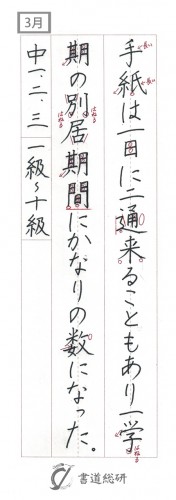 3月
手紙は一日に二通来ることもあり一学
期の別居期間にかなりの数になった。
中一、二、三 一級〜十級
書道総研